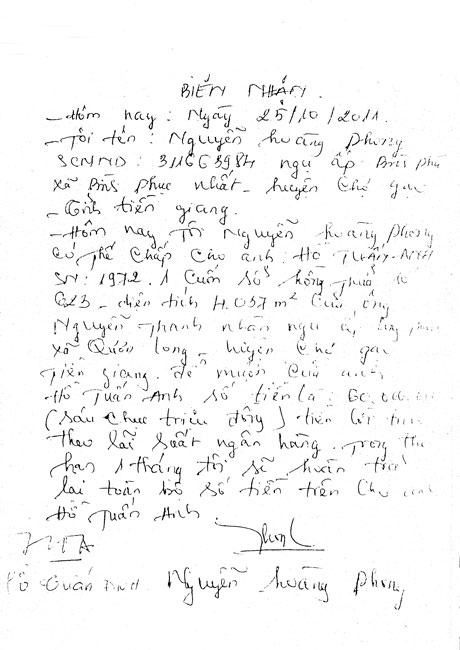 BIÊN NHẬN.
- Hôm nay: Ngày 25/10/2011.
- Tôi tên: Nguyễn Hoàng Phong
SCMND: 311663984 ngụ ấp Bình Phú
xã Bình Phục Nhất - huyện Chợ Gạo
- Tỉnh tiền giang.
- Hôm nay Tôi Nguyễn Hoàng Phong
có Thế Chấp Cho anh: HỒ TUẤN ANH
SN: 1972. 1 Cuốn Sổ hồng Thửa
623 - diện tích 4.057 m² Của ông
Nguyễn Thanh nhân ngụ ấp
xã Quơn long - huyện Chợ gạo
Tiền giang. để mượn Của anh
Hồ Tuấn Anh số tiền là: 60.000.000
(Sáu Chục triệu đồng) tiền lời tính
theo lãi suất ngân hàng. Trong thời
hạn 1 tháng tôi sẽ hoàn trả
lại toàn bộ số tiền trên Cho anh
Hồ Tuấn Anh.
Hồ Tuấn Anh Nguyễn Hoàng Phong